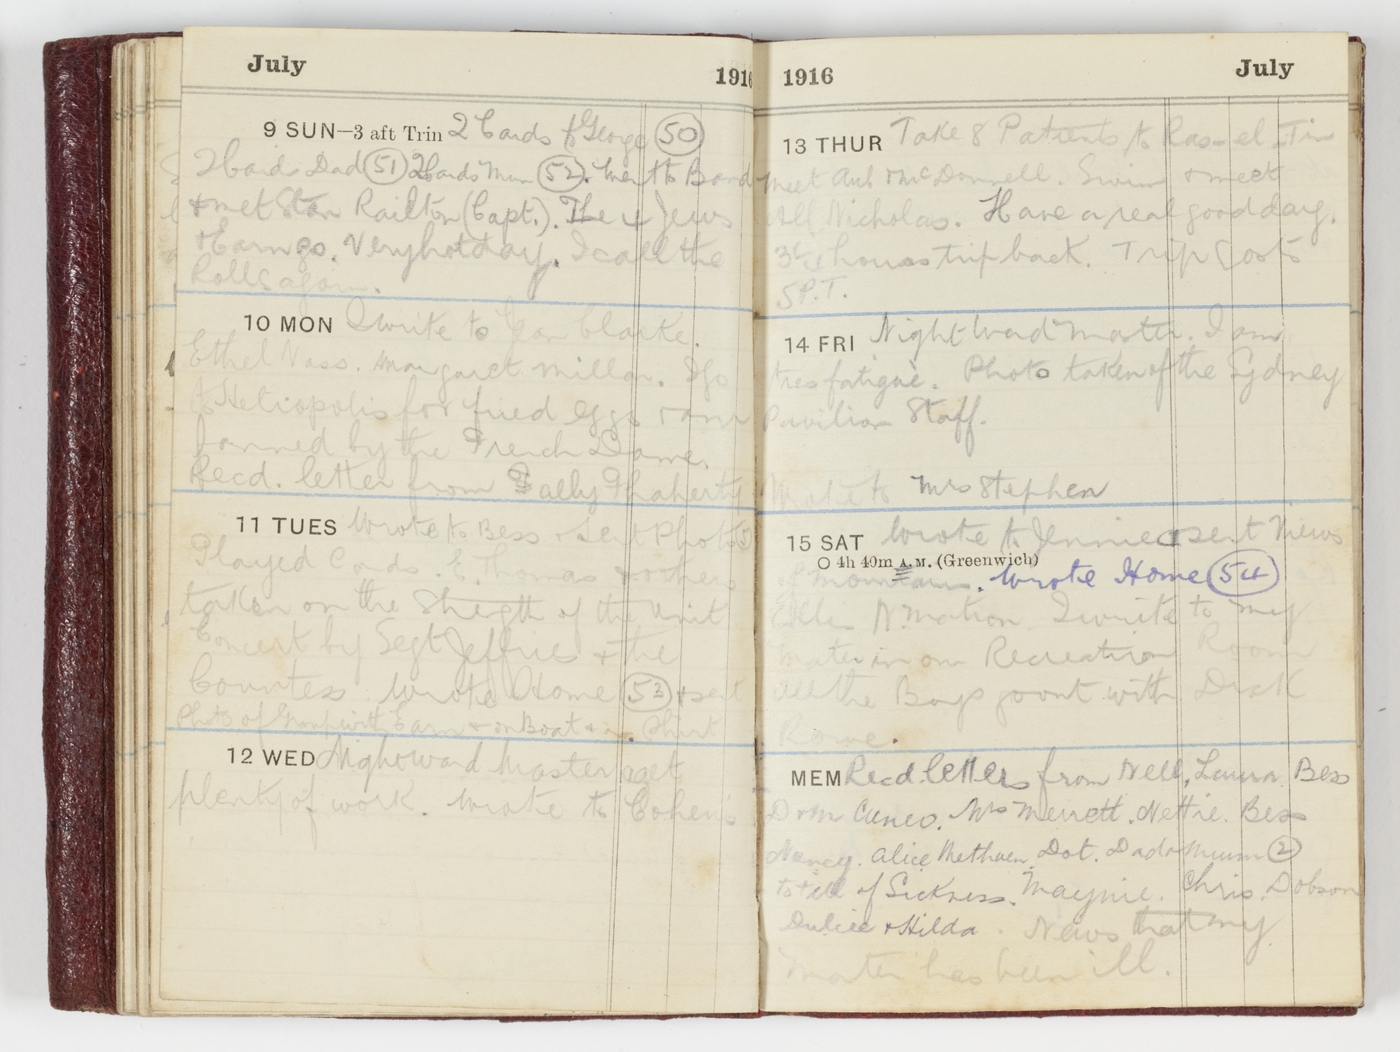 July 1916
9 SUN—3 aft Trin 2 Cards to George (50)
2 Cards Dad (51) 2 Cards Mum (52). Went to Band
& met Stan Railton (Capt.). The 4 Jews
& Earn go. Very hot day. I call the
Rolls again.
10 MON I write to Jean Clarke.
Ethel Vass. Margaret Millar. I go
to Heliopolis for fried eggs & am
fanned by the French Dame.
Recd. letter from Sally Flaherty
11 TUES Wrote to Bess & sent Photos
Played Cards. E. Thomas & others
taken on the Stregth of the Unit
Concert by Segt Jeffries & the
Countess. Wrote Home (53) & sent
Photo of Group with Earn & on Boat & in Shirt
12 WED Night Ward Master & get
plenty of work. Wrote to Cohen's
1916 July
13 THUR Take 8 Patients to Ras-el-Tin
meet Aub McDonnell. Swim & meet
Nicholas. Have a real good day.
3 hours trip back. Trip Costs
5 P.T.
14 FRI Night Ward Master. I am
tres fatigue. Photo taken of the Sydney
Pavilion Staff.
Write to Mrs Stephen
15 SAT Wrote to Jennie & sent Views
4h 40m A.M. (Greenwich)
of . Wrote Home (54)
I write to my
Mater in our Recreation Room
All the Boys go out with Dick
Rowe.
MEM Recd letters from Nell, Laura Bess
D & M Cuneo. Mrs Merrett. Nettie. Bess
Nancy. Alice Methuen Dot. Dad & Mum (2)
to tell of Sickness. Maynie. Chris. Dobson
Dulcie & Hilda. News that my
Mater has been ill.